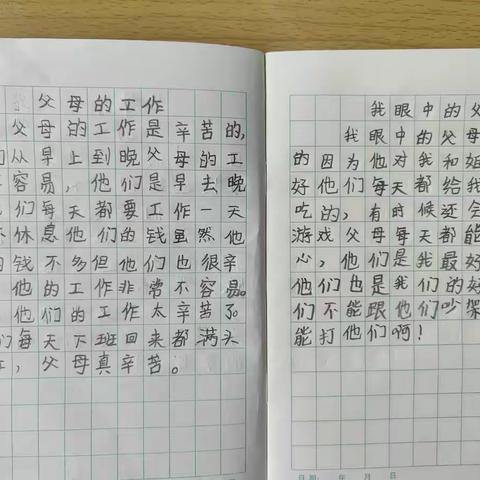 父母的工作
父母的工作是辛苦的,
们从早上到晚父母的工
容易,他们是早去晚
们每天都要工作一天
休息他们的钱虽然他
的钱不多但他们也很辛
他的工作非常不容易。
他们的工作太辛苦了
们每天下班回来都满头
,父母真辛苦。
我眼中的父
我眼中的父母
的因为他对我和姐
好他们每天都给我
吃的,有时候还会
游戏父母每天都能
心,他们是我最好
他们也是我们的好
们不能跟他们吵架
能打他们啊!
日期: 年 月 日